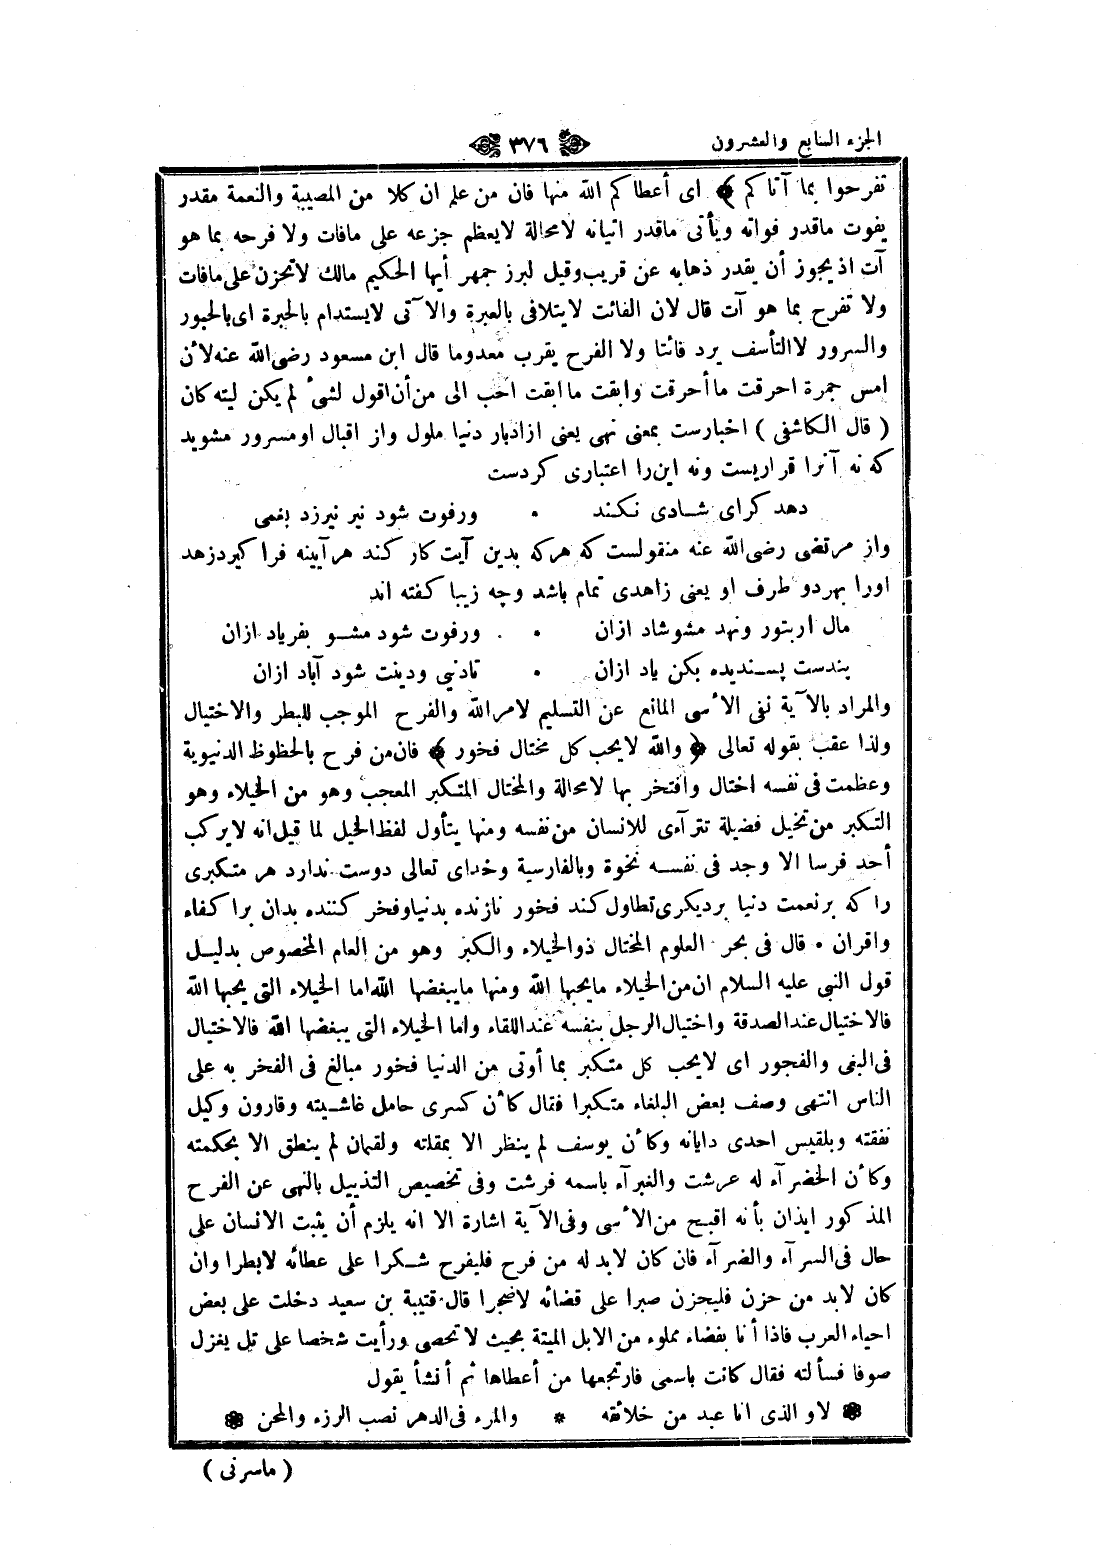 الجزء السابع والعشرون
٣٧٦
تفرحوا بما آتاكم ﴾ اى أعطاكم الله منها فان من علم ان كلا من المصيبة والنعمة مقدر
يفوت ماقدر فواته ويأتى ماقدر اتيانه لامحالة لايعظم جزعه على مافات ولا فرحه بما هو
آت اذ يجوز أن يقدر ذهابه عن قريب وقيل لبرز جمهر أيها الحكيم مالك لاتحزن على مافات
ولا تفرح بما هو آت قال لان الفائت لايتلافى بالعبرة والآتى لايستدام بالحبرة اى بالحبور
والسرور لاالتأسف يرد فائتا ولا الفرح يقرب معدوما قال ابن مسعود رضى الله عنه لأن
امس جمرة احرقت ماأحرقت وابقت ماابقت احب الى من أن اقول لشئ لم يكن ليته كان
( قال الكاشفى ) اخبارست بمعنى نهى يعنى ازادبار دنيا ملول واز اقبال اومسرور مشويد
كه نه آنرا قراريست ونه اين را اعتبارى كردست
دهد كراى شادى نكند • ورفوت شود نير نيرزد بغمى
واز مرتضى رضى الله عنه منقولست كه هركه بدين آيت كار كند هرآيينه فرا كيرد زهد
اورا بهردو طرف او يعنى زاهدى تمام باشد وچه زيبا كفته اند
مال اربتور ونهد مشوشاد ازان • ورفوت شود مشو بفرياد ازان
بندست پسنديده بكن ياد ازان • تادنيى ودينت شود آباد ازان
والمراد بالآية نفى الأسى المانع عن التسليم لامرالله والفرح الموجب للبطر والاختيال
ولذا عقب بقوله تعالى ﴿ والله لايحب كل مختال فخور ﴾ فان من فرح بالحظوظ الدنيوية
وعظمت فى نفسه اختال وافتخر بها لامحالة والمختال المتكبر المعجب وهو من الخيلاء وهو
التكبر من تخيل فضيلة تترآءى للانسان من نفسه ومنها يتأول لفظ الخيل لما قيل انه لايركب
أحد فرسا الا وجد فى نفسه نخوة وبالفارسية وخداى تعالى دوست ندارد هر متكبرى
را كه برنعمت دنيا برديكرى تطاول كند فخور نازنده بدنيا وفخر كننده بدان برا كفاء
واقران • قال فى بحر العلوم المختال ذوالخيلاء والكبر وهو من العام المخصوص بدليل
قول النبى عليه السلام ان من الخيلاء مايحبها الله ومنها مايبغضها الله اما الخيلاء التى يحبها الله
فالاختيال عند الصدقة واختيال الرجل بنفسه عند اللقاء واما الخيلاء التى يبغضها الله فالاختيال
فى البغى والفجور اى لايحب كل متكبر بما أوتى من الدنيا فخور مبالغ فى الفخر به على
الناس انتهى وصف بعض البلغاء متكبرا فقال كأن كسرى حامل غاشيته وقارون وكيل
نفقته وبلقيس احدى داياته وكأن يوسف لم ينظر الا بمقلته ولقمان لم ينطق الا بحكمته
وكأن الخضرآء له عرشت والغبرآء باسمه فرشت وفى تخصيص التذييل بالنهى عن الفرح
المذكور ايذان بأنه اقبح من الأسى وفى الآية اشارة الا انه يلزم أن يثبت الانسان على
حال فى السرآء والضرآء فان كان لابد له من فرح فليفرح شكرا على عطائه لابطرا وان
كان لابد من حزن فليحزن صبرا على قضائه لاضجرا قال قتيبة بن سعيد دخلت على بعض
احياء العرب فاذا أنا بفضاء مملوء من الابل الميتة بحيث لاتحصى ورأيت شخصا على تل يغزل
صوفا فسألته فقال كانت باسمى فارتجعها من أعطاها ثم أنشأ يقول
لاو الذى انا عبد من خلائقه * والمرء فى الدهر نصب الرزء والمحن
( ماسرنى )